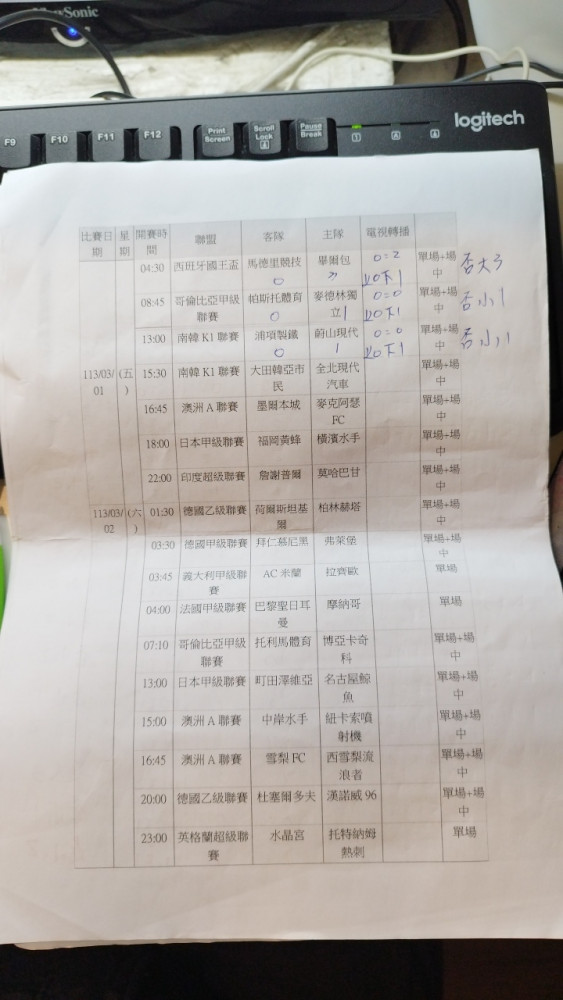 ViewSonic
logitech
F9 F10 F11 F12 Print Screen Scroll Lock Pause Break
1 A
比賽日期 星期 開賽時間 聯盟 客隊 主隊 電視轉播
04:30 西班牙國王盃 馬德里競技 畢爾包 0=2 單場+場中 否大3
0 下1
08:45 哥倫比亞甲級聯賽 帕斯托體育 麥德林獨立 0=0 單場+場中 否小1
0 1 下1
13:00 南韓 K1 聯賽 浦項製鐵 蔚山現代 0=0 單場+場中 否小1
0 1 下1
113/03/01 (五) 15:30 南韓 K1 聯賽 大田韓亞市民 全北現代汽車 單場+場中
16:45 澳洲 A 聯賽 墨爾本城 麥克阿瑟 FC 單場+場中
18:00 日本甲級聯賽 福岡黃蜂 橫濱水手 單場+場中
22:00 印度超級聯賽 詹謝普爾 莫哈巴甘 單場+場中
113/03/02 (六) 01:30 德國乙級聯賽 荷爾斯坦基爾 柏林赫塔 單場+場中
03:30 德國甲級聯賽 拜仁慕尼黑 弗萊堡 單場+場中
03:45 義大利甲級聯賽 AC 米蘭 拉齊歐 單場
04:00 法國甲級聯賽 巴黎聖日耳曼 摩納哥 單場
07:10 哥倫比亞甲級聯賽 托利馬體育 博亞卡奇科 單場+場中
13:00 日本甲級聯賽 町田澤維亞 名古屋鯨魚 單場+場中
15:00 澳洲 A 聯賽 中岸水手 紐卡索噴射機 單場+場中
16:45 澳洲 A 聯賽 雪梨 FC 西雪梨流浪者 單場+場中
20:00 德國乙級聯賽 杜塞爾多夫 漢諾威 96 單場+場中
23:00 英格蘭超級聯賽 水晶宮 托特納姆熱刺 單場